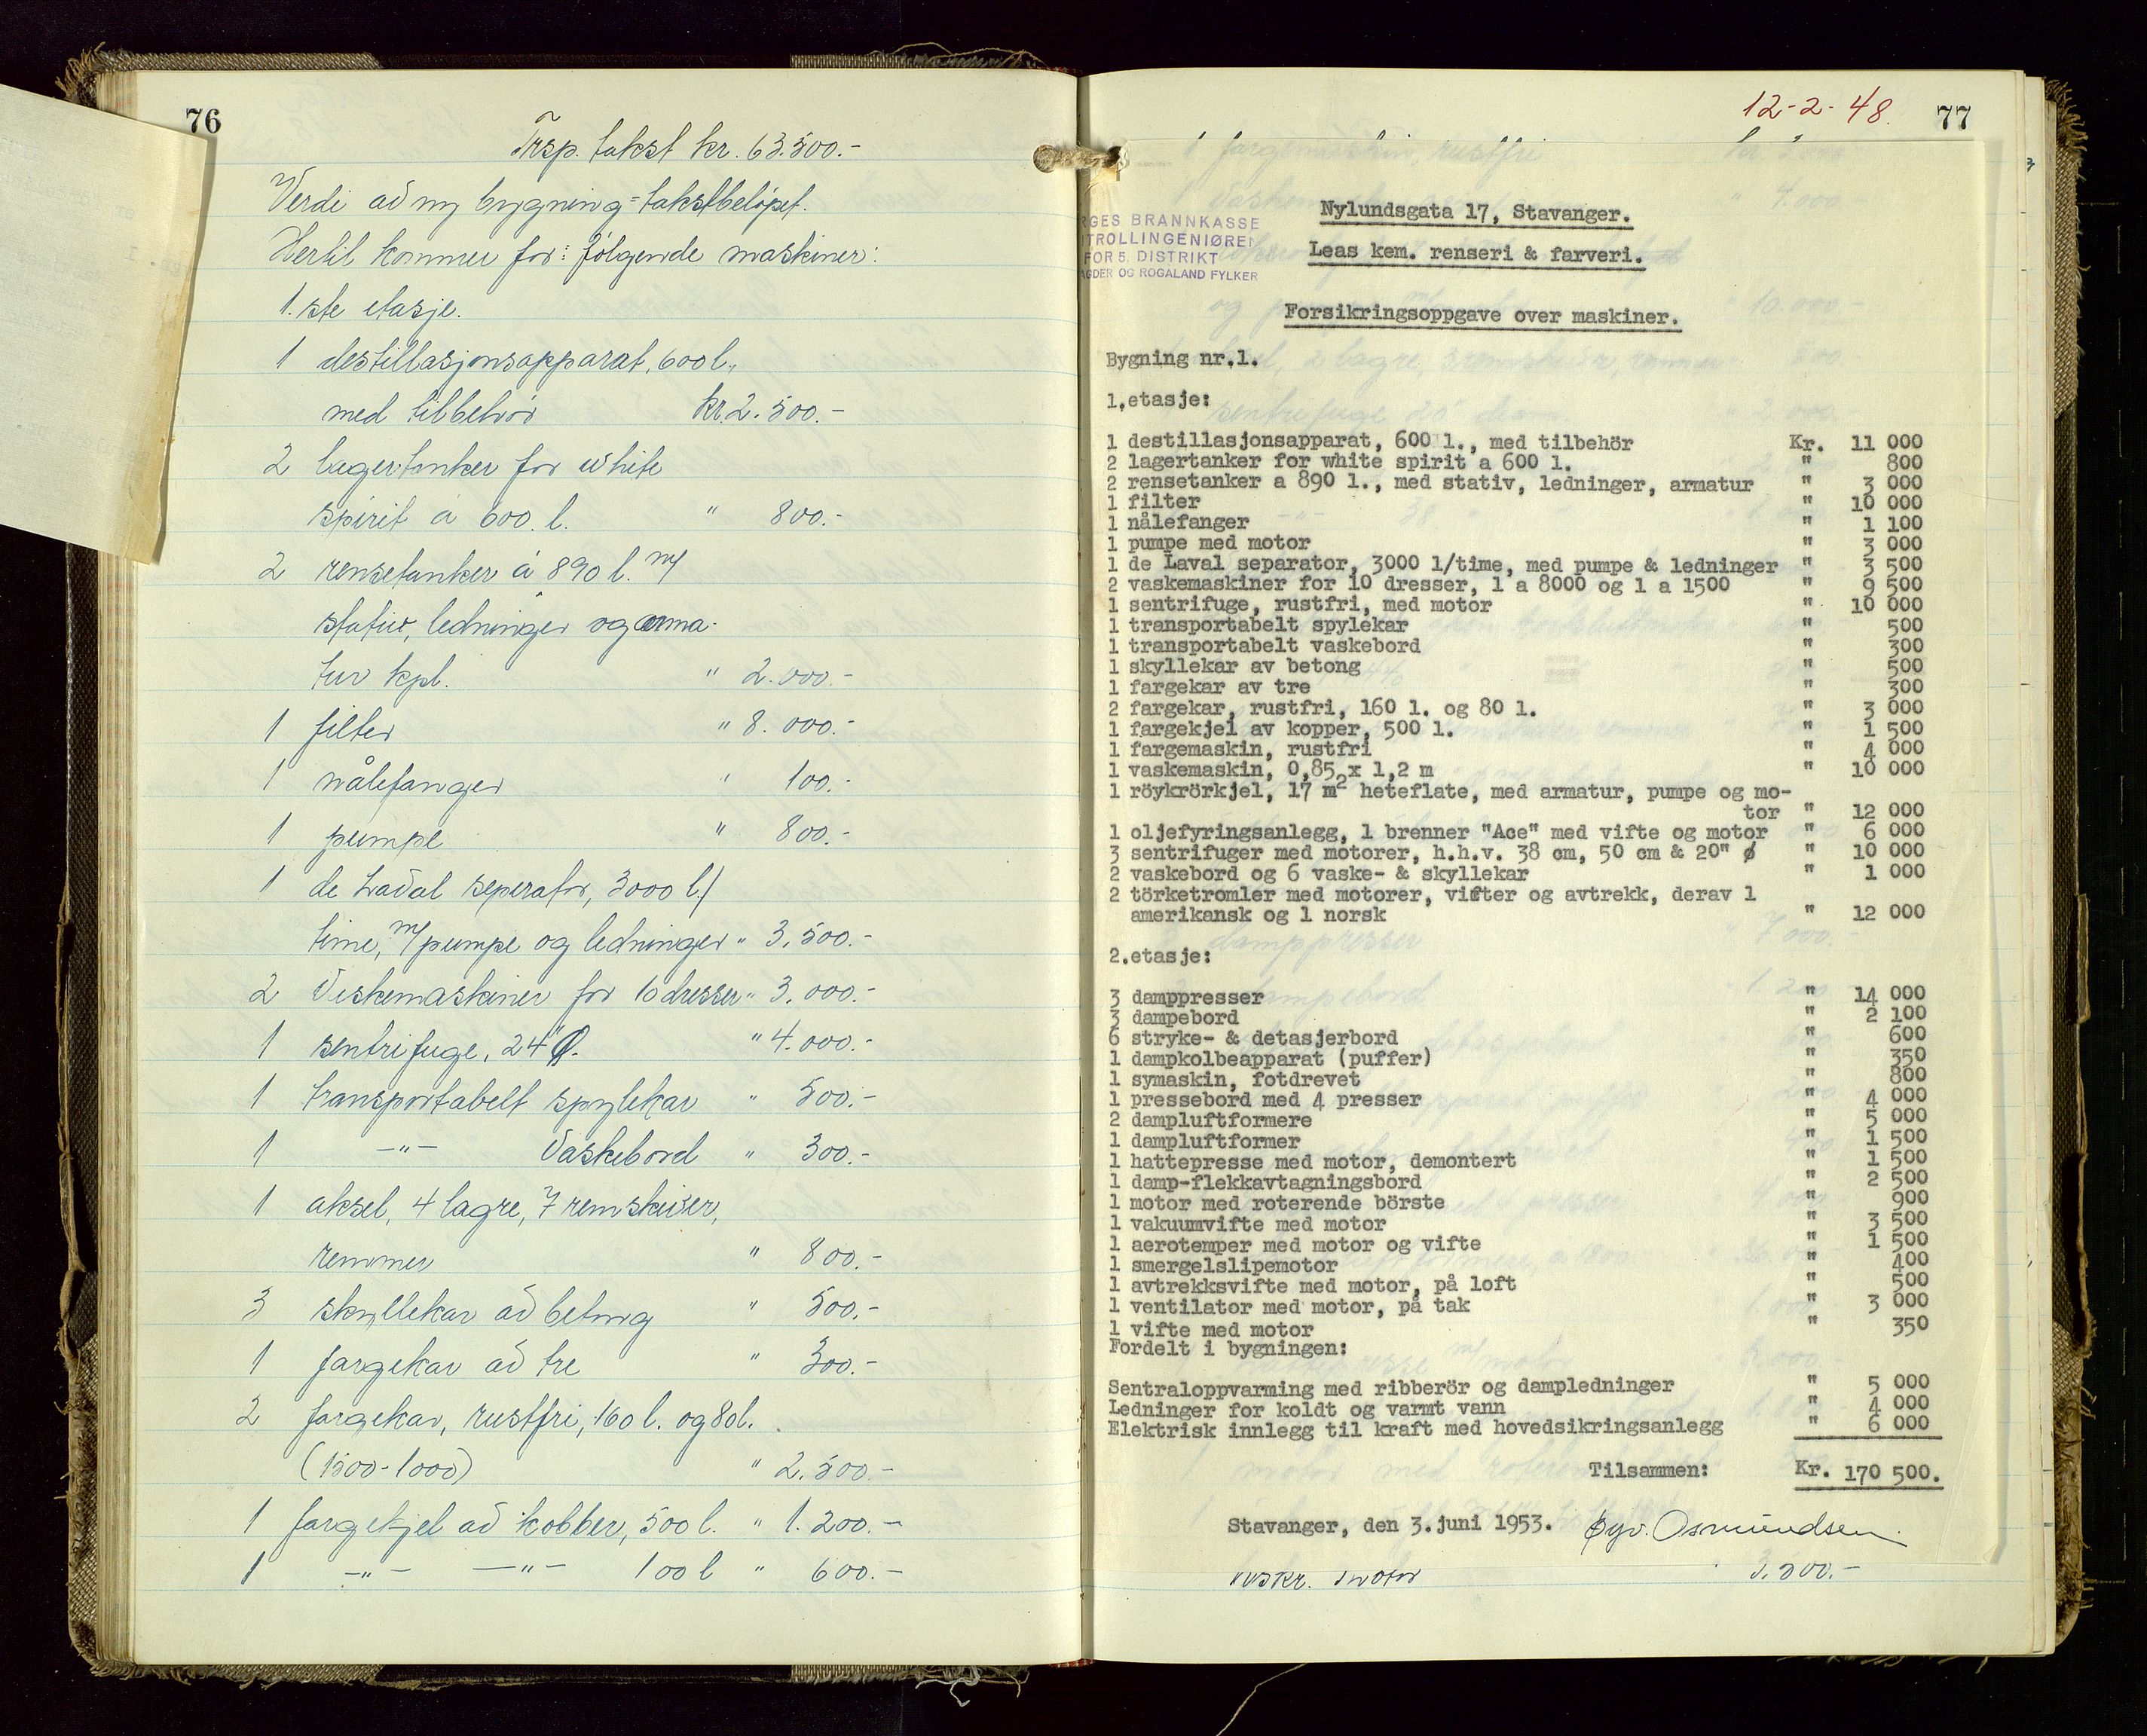 76
Trsp. takst kr. 63.500.-
Verdi av ny bygning = takstbeløpet.
Hertil kommer for: følgende maskiner:
1. ste etasje.
1 destillasjonsapparat, 600 l.,
med tilbehør kr. 2.500.-
2 lagertanker for white
spirit a 600. l. " 800.-
2 rensetanker á 890 l. m/
stativ, ledninger og arma-
tur kpl. " 2.000.-
1 filter " 8.000.-
1 nålefanger " 100.-
1 pumpe " 800.-
1 de Laval seperator, 3000 l/
time, m/pumpe og ledninger " 3.500.-
2 Vaskemaskiner for 10 dresser " 3.000.-
1 sentrifuge, 24" Ø. " 4.000.-
1 transportabelt spylekar " 500.-
1 -"- Vaskebord " 300.-
1 aksel, 4 lagre, 7 remskiver,
remmer " 800.-
3 skyllekar av betong " 500.-
1 fargekar av tre " 300.-
2 fargekar, rustfri, 160 l. og 80 l.
(1500-1000) " 2.500.-
1 fargekjel av kobber, 500 l. " 1.200.-
1 -"- -"- 100 l " 600.-
12-2-48. 77
RGES BRANNKASSE
TROLLINGENIØREN
FOR 5. DISTRIKT
AGDER OG ROGALAND FYLKER
Nylundsgata 17, Stavanger.
Leas kem. renseri & farveri.
Forsikringsoppgave over maskiner.
Bygning nr.1.
1.etasje:
1 destillasjonsapparat, 600 l., med tilbehör Kr. 11 000
2 lagertanker for white spirit a 600 l. " 800
2 rensetanker a 890 l., med stativ, ledninger, armatur " 3 000
1 filter " 10 000
1 nålefanger " 1 100
1 pumpe med motor " 3 000
1 de Laval separator, 3000 l/time, med pumpe & ledninger " 3 500
2 vaskemaskiner for 10 dresser, 1 a 8000 og 1 a 1500 " 9 500
1 sentrifuge, rustfri, med motor " 10 000
1 transportabelt spylekar " 500
1 transportabelt vaskebord " 300
1 skyllekar av betong " 500
1 fargekar av tre " 300
2 fargekar, rustfri, 160 l. og 80 l. " 3 000
1 fargekjel av kopper, 500 l. " 1 500
1 fargemaskin, rustfri " 4 000
1 vaskemaskin, 0,85 x 1,2 m " 10 000
1 röykrörkjel, 17 m2 heteflate, med armatur, pumpe og mo-
tor " 12 000
1 oljefyringsanlegg, 1 brenner "Ace" med vifte og motor " 6 000
3 sentrifuger med motorer, h.h.v. 38 cm, 50 cm & 20" ø " 10 000
2 vaskebord og 6 vaske- & skyllekar " 1 000
2 törketromler med motorer, vifter og avtrekk, derav 1
amerikansk og 1 norsk " 12 000
2.etasje:
3 damppresser " 14 000
3 dampebord " 2 100
6 stryke- & detasjerbord " 600
1 dampkolbeapparat (puffer) " 350
1 symaskin, fotdrevet " 800
1 pressebord med 4 presser " 4 000
2 dampluftformere " 5 000
1 dampluftformer " 1 500
1 hattepresse med motor, demontert " 1 500
1 damp-flekkavtagningsbord " 2 500
1 motor med roterende börste " 900
1 vakuumvifte med motor " 3 500
1 aerotemper med motor og vifte " 1 500
1 smergelslipemotor " 400
1 avtrekksvifte med motor, på loft " 500
1 ventilator med motor, på tak " 3 000
1 vifte med motor " 350
Fordelt i bygningen:
Sentraloppvarming med ribberör og dampledninger " 5 000
Ledninger for koldt og varmt vann " 4 000
Elektrisk innlegg til kraft med hovedsikringsanlegg " 6 000
Tilsammen: Kr. 170 500.
Stavanger, den 3.juni 1953. Øyv. Osmundsen.
motor 3.500.-